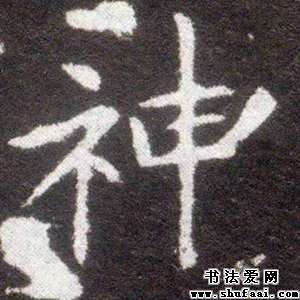 神
书法爱网
www.shufaai.com